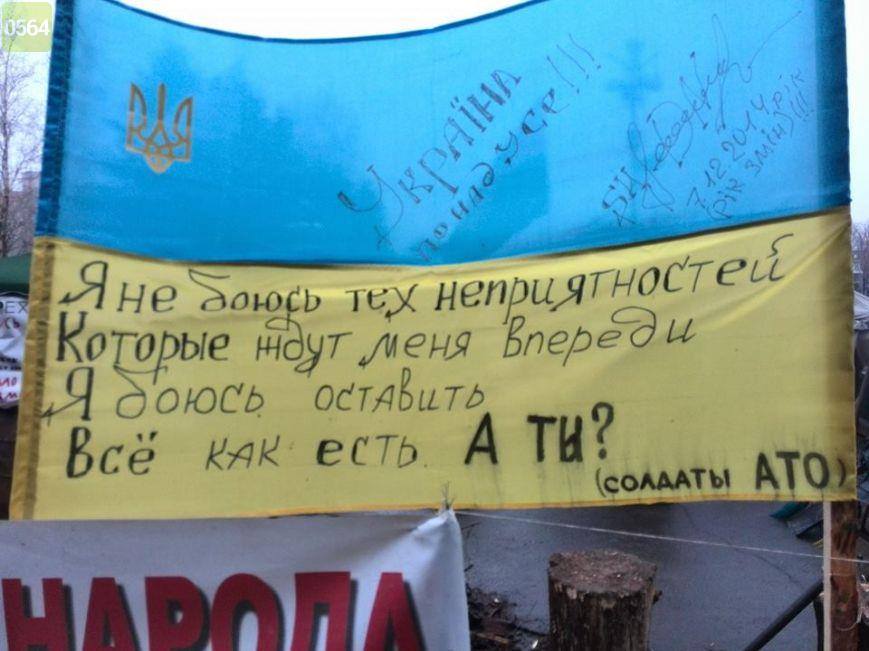 0564
Україна
понад усе!!!
7.12.2014 рік
(рік змін)!!!
Я не боюсь тех неприятностей
Которые ждут меня впереди
Я боюсь оставить
Всё как есть. А ты?
(солдаты АТО)
НАРОДА